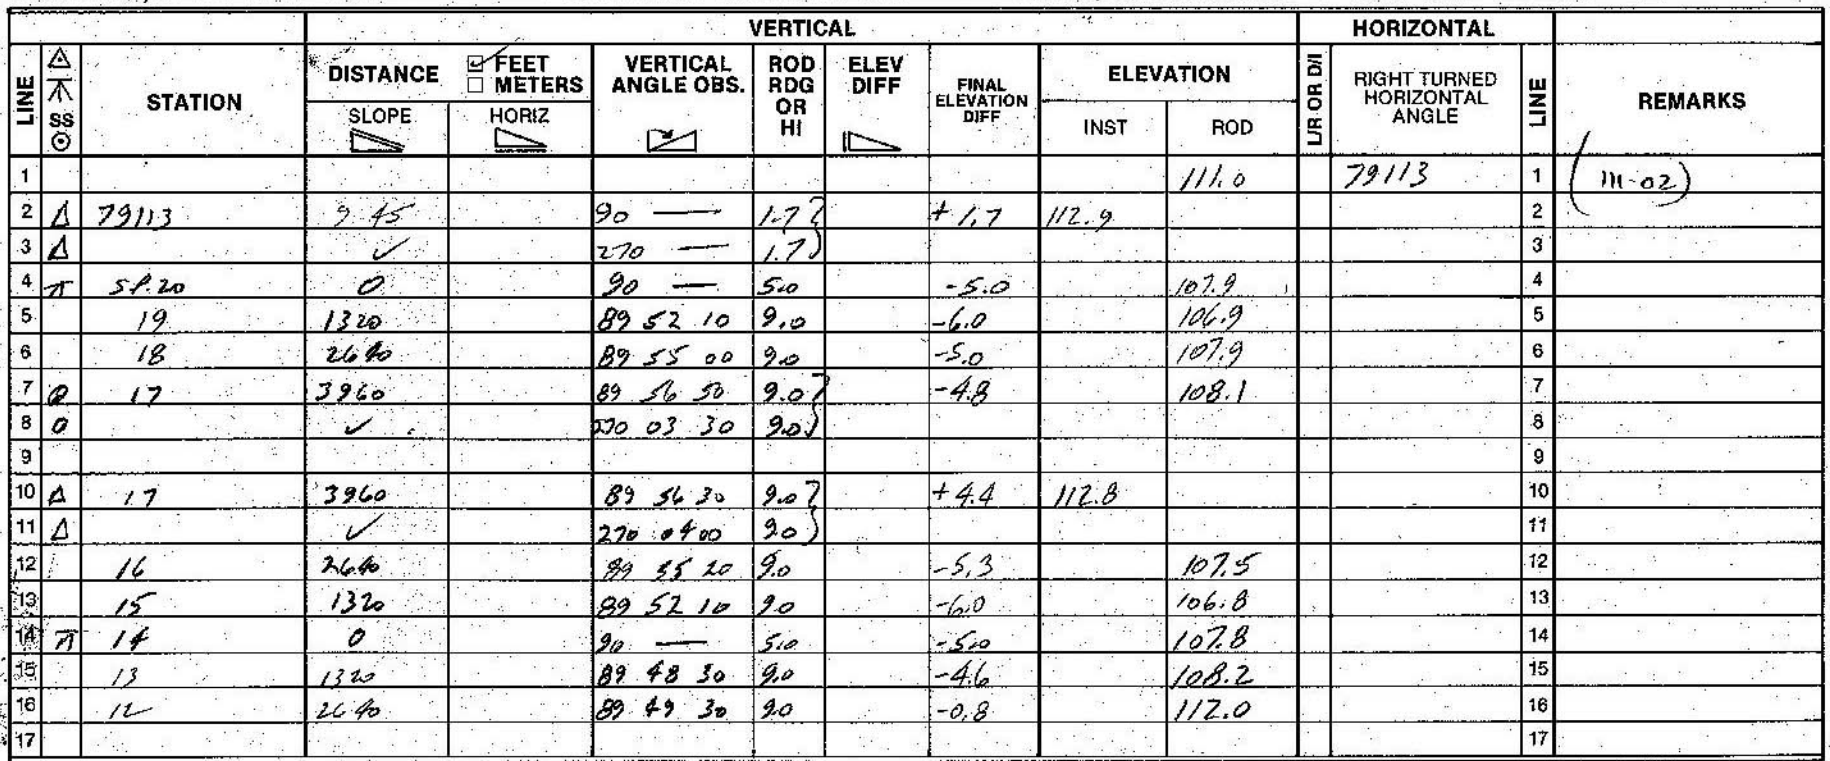 VERTICAL HORIZONTAL
LINE SS STATION DISTANCE FEET METERS SLOPE HORIZ VERTICAL ANGLE OBS. ROD RDG OR HI ELEV DIFF FINAL ELEVATION DIFF ELEVATION INST ROD L/R OR D/I RIGHT TURNED HORIZONTAL ANGLE LINE REMARKS
1 111.0 79113 1 (111-02)
2 Δ 79113 9.45 90 — 1.7 +1.7 112.9 2
3 Δ ✓ 270 — 1.7 3
4 S.P. 20 0 90 — 5.0 -5.0 107.9 4
5 19 1320 89 52 10 9.0 -6.0 106.9 5
6 18 2640 89 55 00 9.0 -5.0 107.9 6
7 17 3960 89 56 50 9.0 -4.8 108.1 7
8 ✓ 270 03 30 9.0 8
9 9
10 Δ 17 3960 89 56 30 9.0 +4.4 112.8 10
11 Δ ✓ 270 04 00 9.0 11
12 16 2640 89 55 20 9.0 -5.3 107.5 12
13 15 1320 89 52 10 9.0 -6.0 106.8 13
14 14 0 90 — 5.0 -5.0 107.8 14
15 13 1320 89 48 30 9.0 -4.6 108.2 15
16 12 2640 89 49 30 9.0 -0.8 112.0 16
17 17